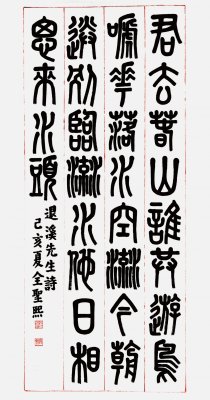 君去春山誰共遊鳥
啼花落水空流今朝
送別臨流水他日相
思來水頭
退溪先生詩
己亥夏全聖熙